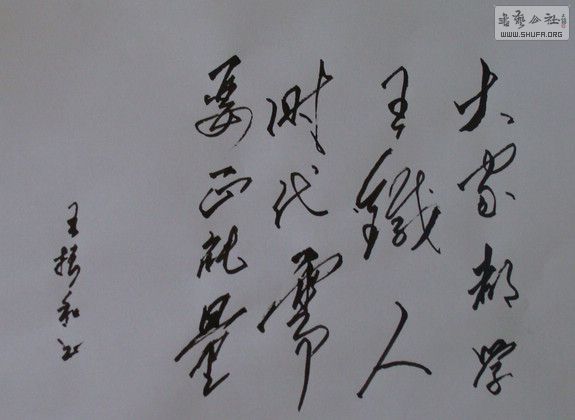 大家都学
王铁人
时代需
要正能量
王振和书
书艺公社
WWW.SHUFA.ORG